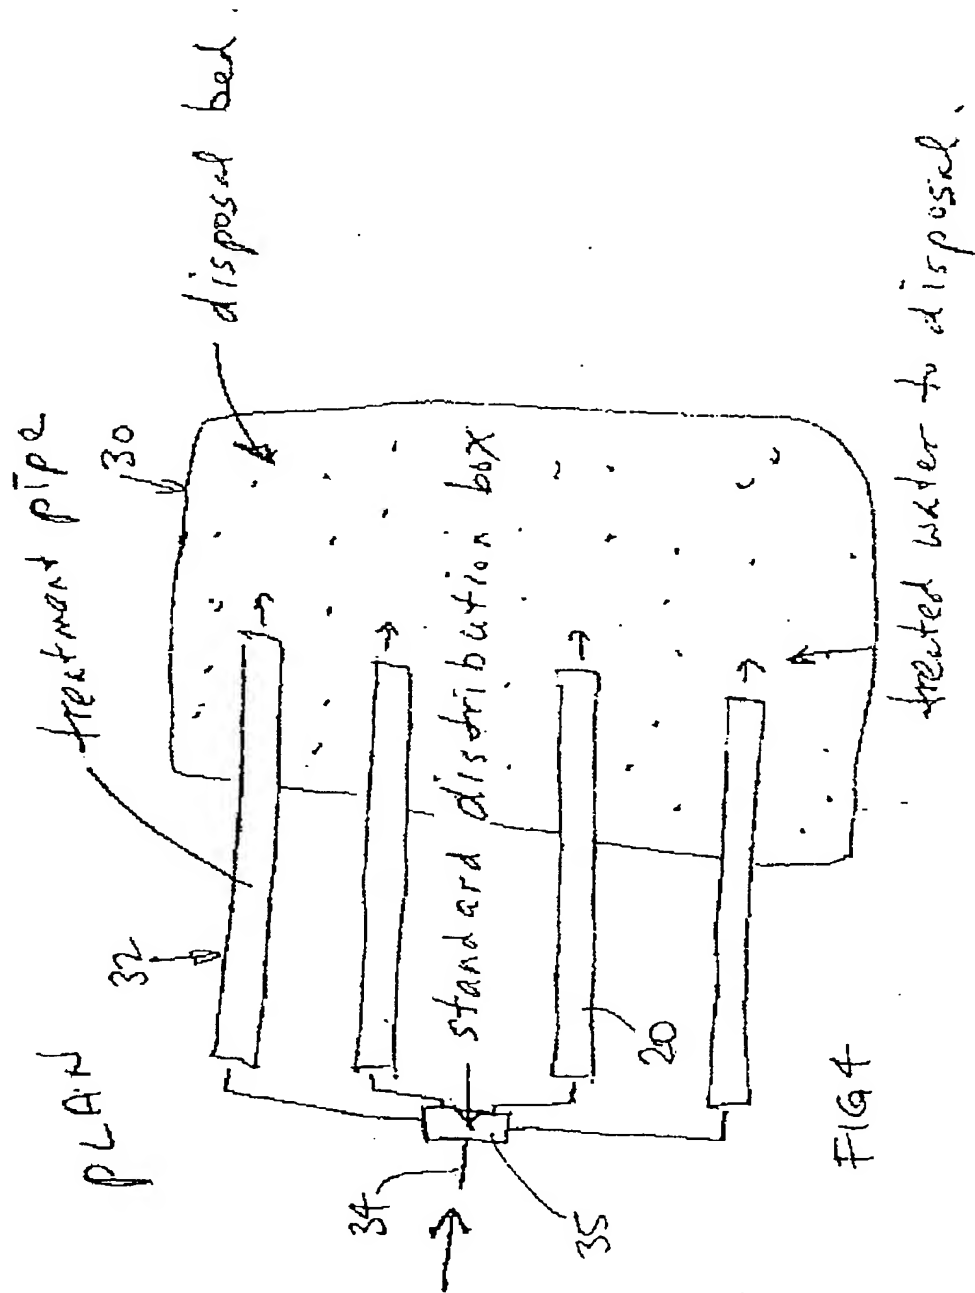 PLAN
treatment pipe
32
30
disposal bed.
34
standard distribution box
35
20
FIG 4
treated water to disposal.